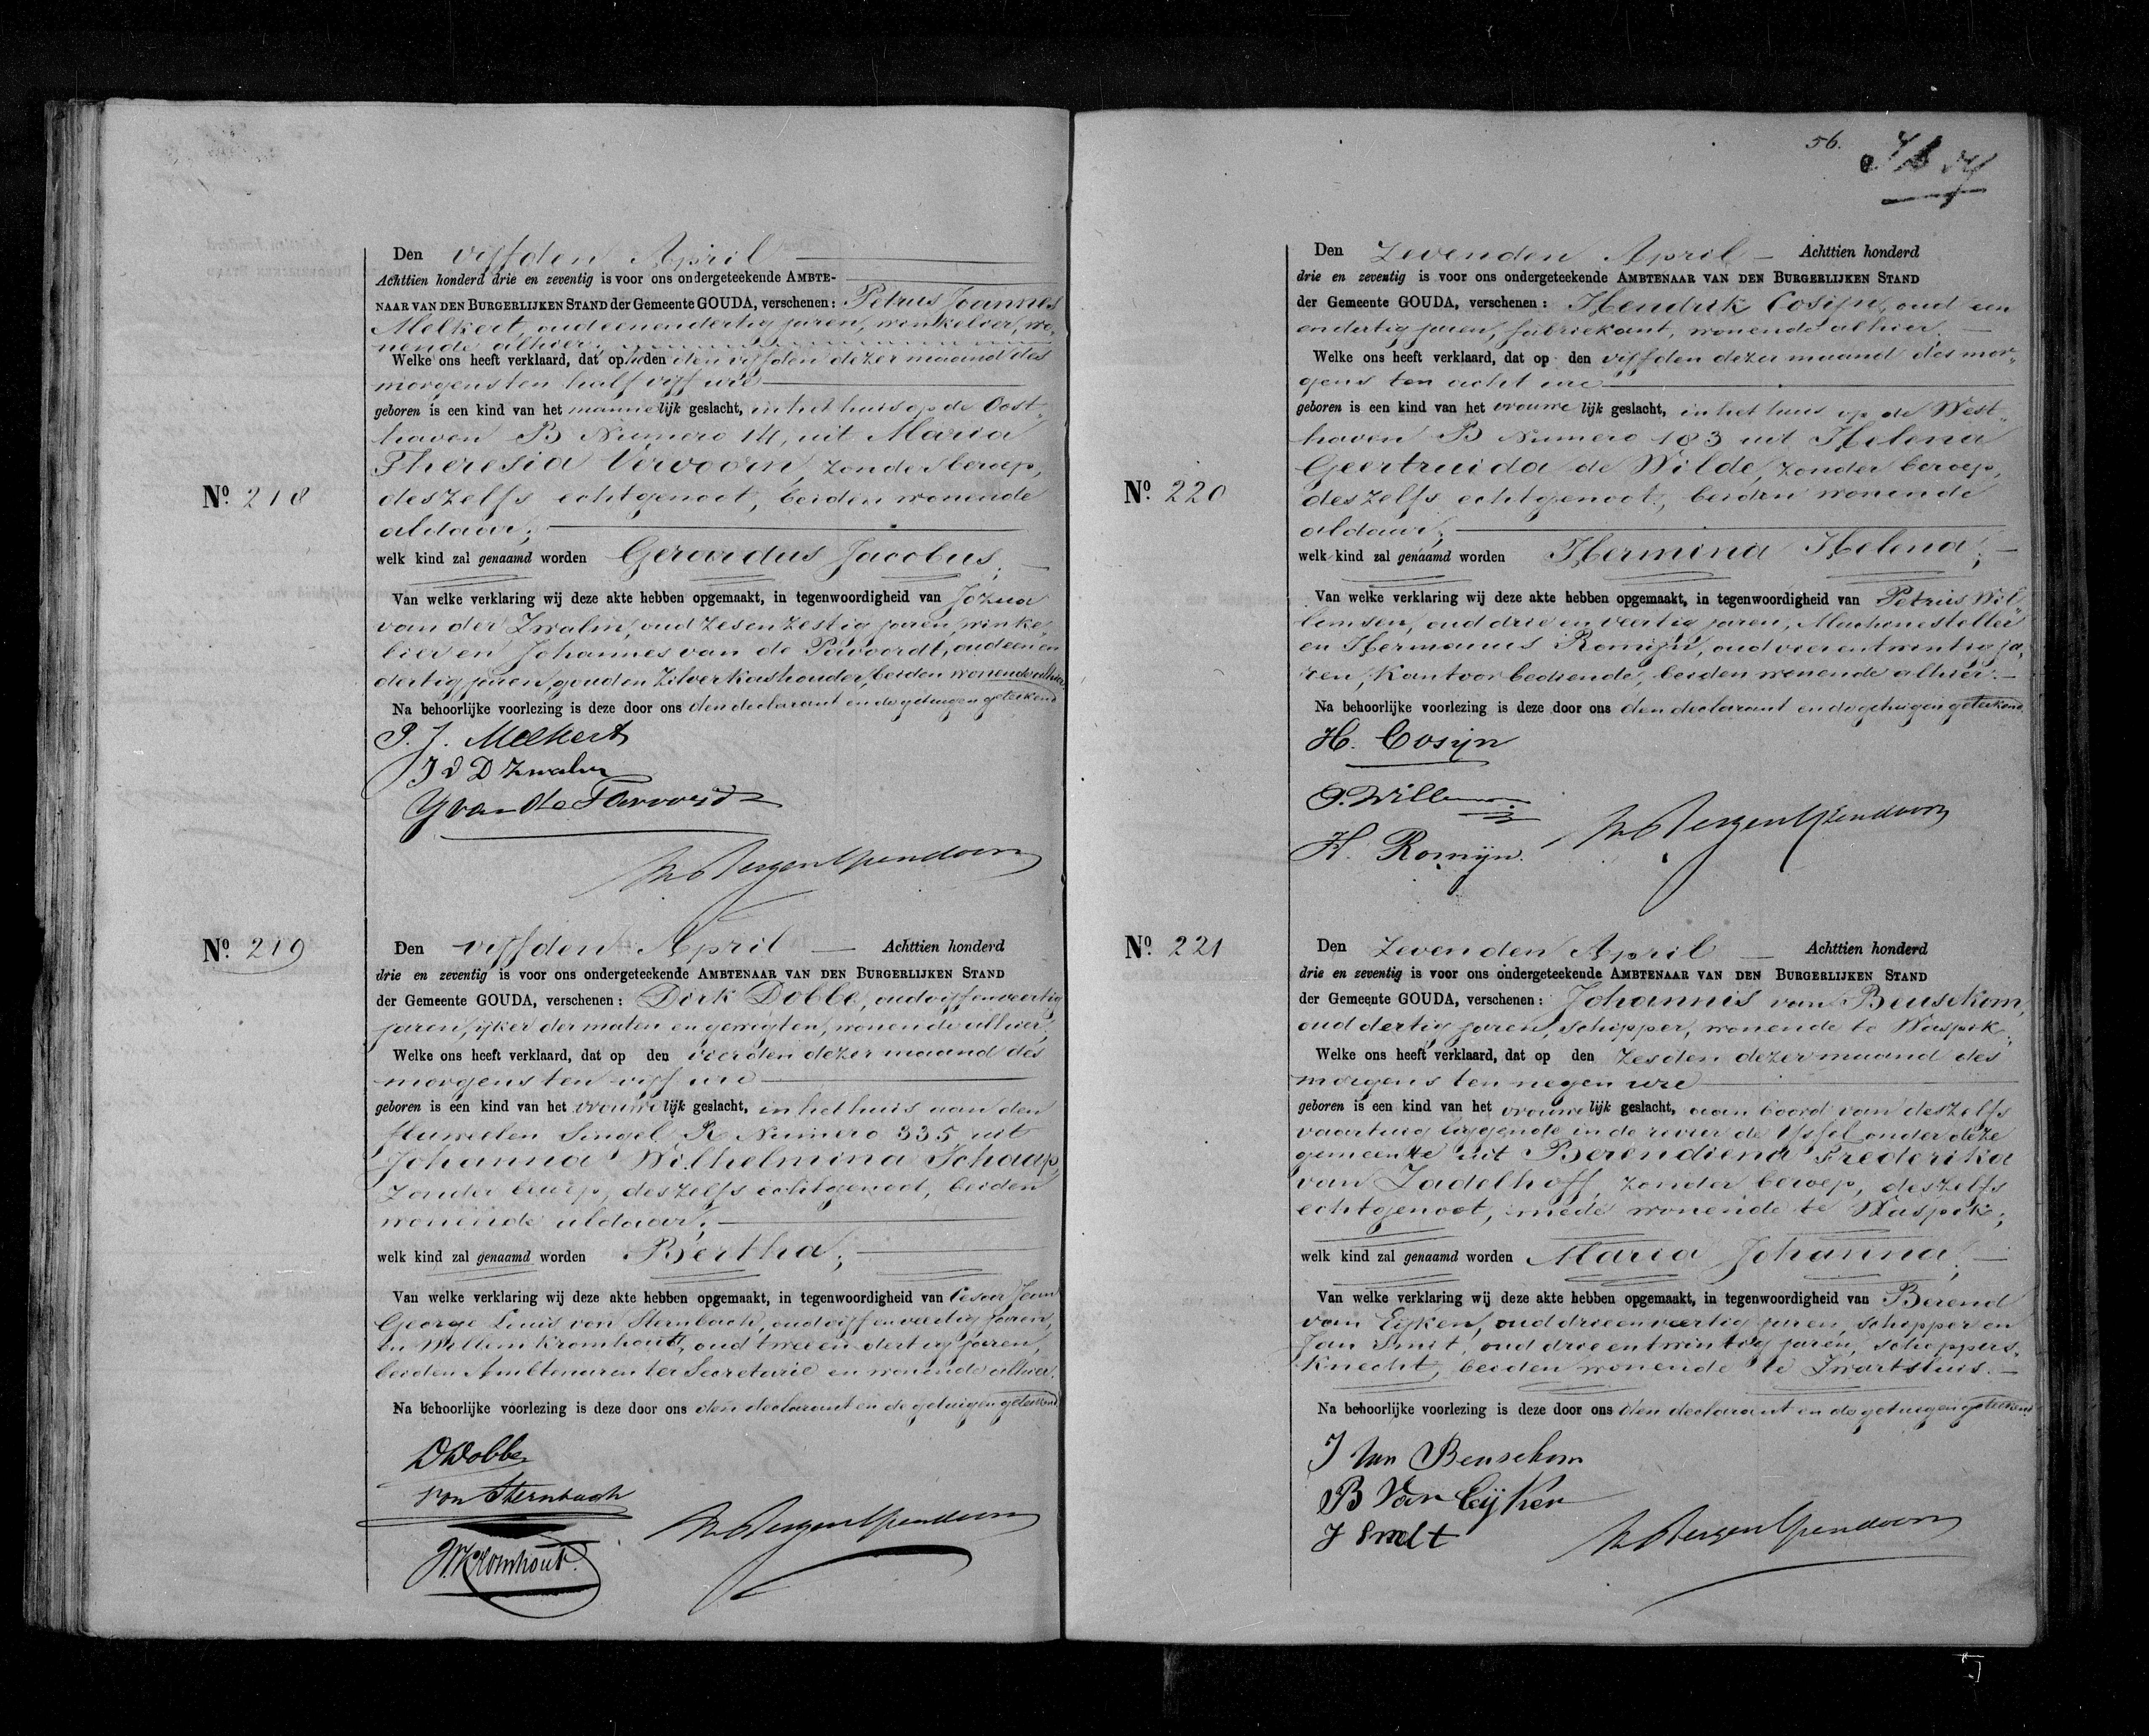 Den vijfden April
Achttien honderd drie en zeventig is voor ons ondergeteekende AMBTE-
NAAR VAN DEN BURGERLIJKEN STAND der Gemeente GOUDA, verschenen: Petrus Joannes
Melkert, oud eenendertig jaren, winkelier, wo-
nende alhier;
Welke ons heeft verklaard, dat op heden den vijfden dezer maand des
morgens ten half vijf ure
geboren is een kind van het mannelijk geslacht, in het huis op de Oost-
haven B Numero 14, uit Maria
Theresia Vervoorn, zonder beroep,
deszelfs echtgenoot, beiden wonende
aldaar;
No. 218
welk kind zal genaamd worden Gerardus Jacobus;
Van welke verklaring wij deze akte hebben opgemaakt, in tegenwoordigheid van Jozua
van der Zwalm, oud zesenzestig jaren, winke-
lier en Johannes van de Pavoordt, oud een en
dertig jaren, goud en zilverkashouder, beiden wonende alhier.
Na behoorlijke voorlezing is deze door ons den declarant en de getuigen geteekend
P. J. Melkert
J v D Zwalm
J van de Pavoordt
No. 219
Den vijfden April Achttien honderd
drie en zeventig is voor ons ondergeteekende AMBTENAAR VAN DEN BURGERLIJKEN STAND
der Gemeente GOUDA, verschenen: Dirk Dobbe, oud vijfenveertig
jaren, ijker der maten en gewigten, wonende alhier,
Welke ons heeft verklaard, dat op den vierden dezer maand des
morgens ten vijf ure
geboren is een kind van het vrouwelijk geslacht, in het huis aan den
fluweelen Singel R Numero 335 uit
Johanna Wilhelmina Schaap,
zonder beroep, deszelfs echtgenoot, beiden
wonende aldaar;
welk kind zal genaamd worden Bertha;
Van welke verklaring wij deze akte hebben opgemaakt, in tegenwoordigheid van Cesar Jean
George Louis von Sternbach, oud vijfenveertig jaren,
en Willem Kromhout, oud twee en dertig jaren,
beiden Ambtenaren ter Secretarie en wonende alhier.
Na behoorlijke voorlezing is deze door ons den declarant en de getuigen geteekend
D Dobbe
von Sternbach
W. Kromhout
56.
Den Zevenden April Achttien honderd
drie en zeventig is voor ons ondergeteekende AMBTENAAR VAN DEN BURGERLIJKEN STAND
der Gemeente GOUDA, verschenen: Hendrik Cosijn, oud een
en dertig jaren, fabriekant, wonende alhier.
Welke ons heeft verklaard, dat op den vijfden dezer maand des mor-
gens ten acht ure
geboren is een kind van het vrouwelijk geslacht, in het huis op de West-
haven B Numero 183 uit Helena
Geertruida de Wilde, zonder beroep,
deszelfs echtgenoot, beiden wonende
aldaar;
No. 220
welk kind zal genaamd worden Hermina Helena;
Van welke verklaring wij deze akte hebben opgemaakt, in tegenwoordigheid van Petrus Wil-
lemsen, oud drie en veertig jaren, Machinesteller
en Hermanus Romijn, oud vierentwintig ja-
ren, kantoorbediende, beiden wonende alhier.
Na behoorlijke voorlezing is deze door ons den declarant en de getuigen geteekend
H. Cosijn
P. Willemsen
H. Romijn.
No. 221
Den Zevenden April Achttien honderd
drie en zeventig is voor ons ondergeteekende AMBTENAAR VAN DEN BURGERLIJKEN STAND
der Gemeente GOUDA, verschenen: Johannis van Beusekom,
oud dertig jaren, schipper, wonende te Waspik.
Welke ons heeft verklaard, dat op den zesden dezer maand des
morgens ten negen ure
geboren is een kind van het vrouwelijk geslacht, aan boord van deszelfs
vaartuig liggende in de rivier de IJssel onder deze
gemeente uit Berendiena Frederika
van Zadelhoff, zonder beroep, deszelfs
echtgenoot, mede wonende te Waspik;
welk kind zal genaamd worden Maria Johanna;
Van welke verklaring wij deze akte hebben opgemaakt, in tegenwoordigheid van Berend
van Eijken, oud drieenveertig jaren, schipper en
Jan Smit, oud drieentwintig jaren, schippers-
knecht, beiden wonende te Zwartsluis.
Na behoorlijke voorlezing is deze door ons den declarant en de getuigen geteekend
J van Beusekom
B Van Eijken
J Smit